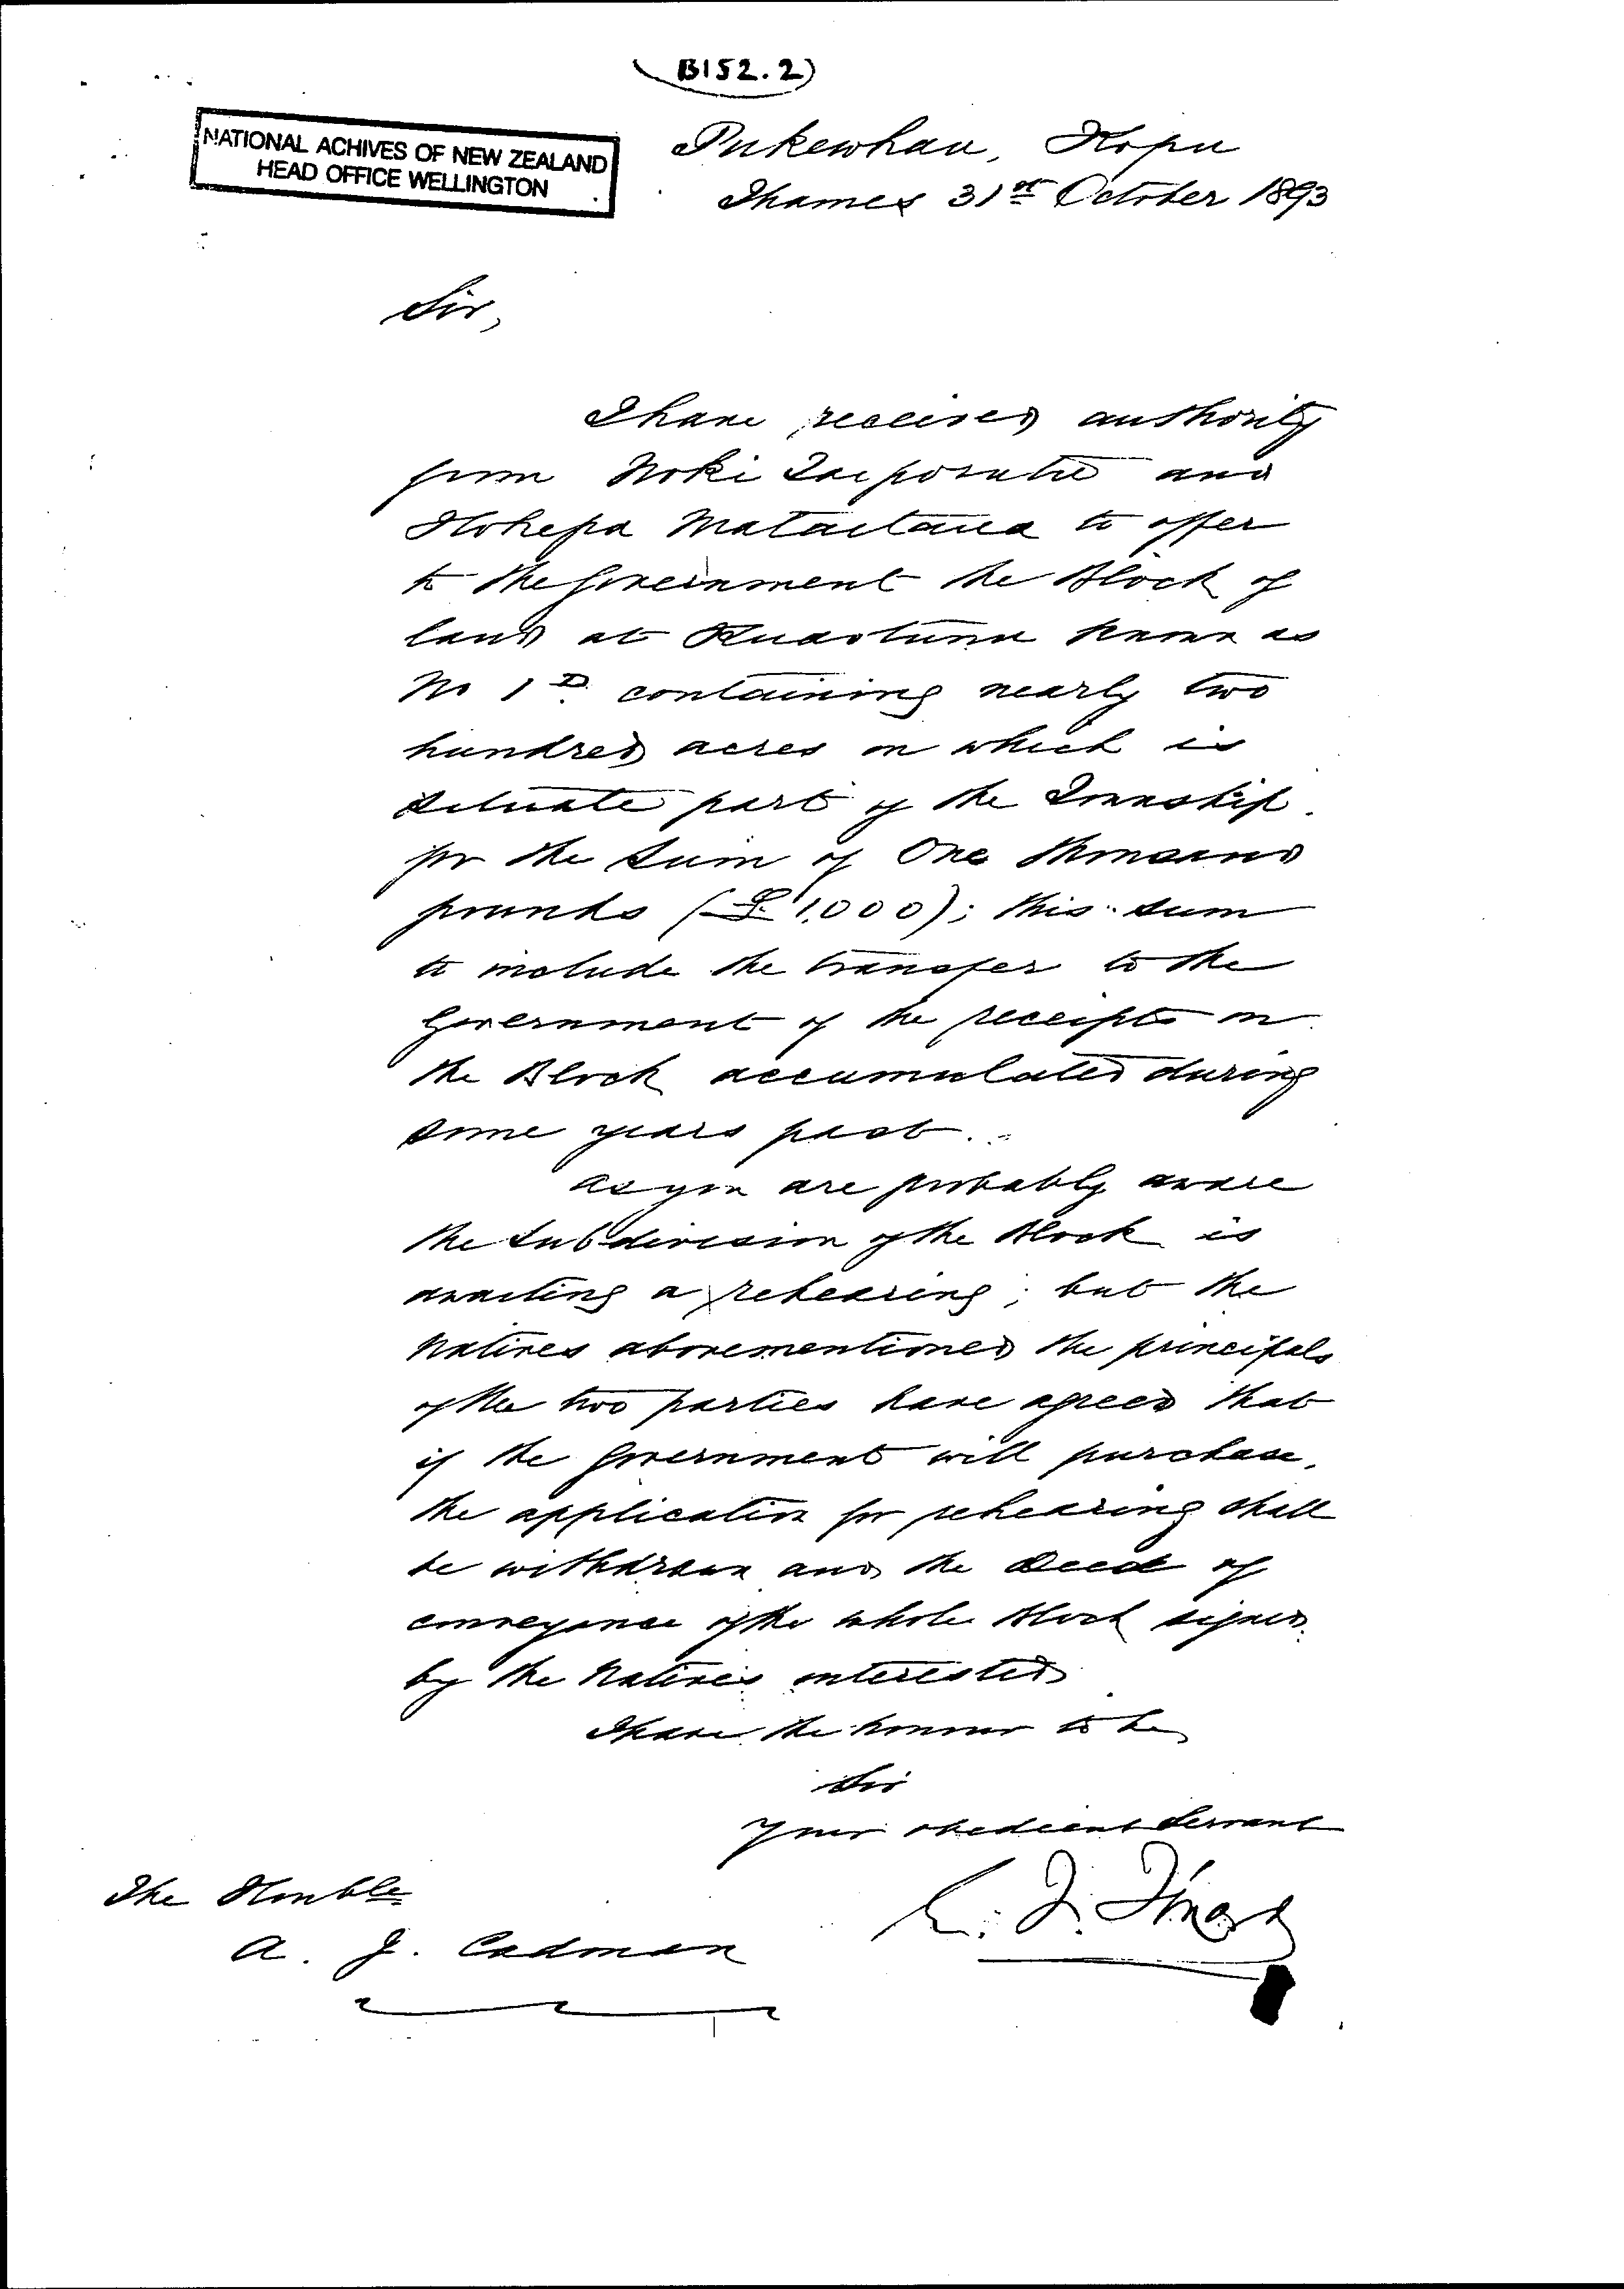 (B152.2)
NATIONAL ACHIVES OF NEW ZEALAND
HEAD OFFICE WELLINGTON
Pukewhau, Kopu
Thames 31st October 1893
Sir,
I have received authority
from Noki and
Hohepa Mataitaua to offer
to the Government the Block of
land at Kuaotunu known as
No 1D. containing nearly two
hundred acres on which is
situate part of the Township.
for the sum of One thousand
pounds (£1,000); this sum
to include the transfer to the
Government of the receipts on
the Block accumulated during
some years past.
As you are probably aware
the subdivision of the Block is
awaiting a rehearing; but the
Natives abovementioned the principals
of the two parties have agreed that
if the Government will purchase,
the application for rehearing shall
be withdrawn and the Deed of
conveyance of the whole Block signed
by the Natives interested
I have the honour to be,
Sir
Your obedient Servant
The Honble
A. J. Cadman